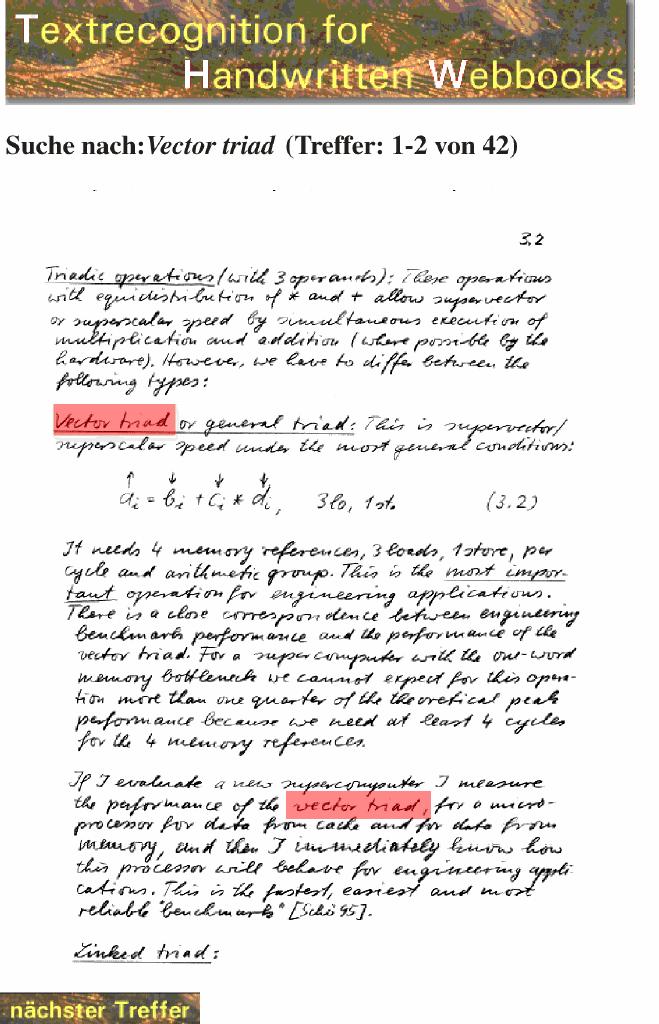 Textrecognition for
Handwritten Webbooks
Suche nach: Vector triad (Treffer: 1-2 von 42)
3.2
Triadic operations (with 3 operands): These operations
with equidistribution of * and + allow supervector
or superscalar speed by simultaneous execution of
multiplication and addition (where possible by the
hardware). However, we have to differ between the
following types:
Vector triad or general triad: This is supervector/
superscalar speed under the most general conditions:
↑ ↓ ↓ ↓
ai = bi + ci * di, 3 lo, 1 st. (3.2)
It needs 4 memory references, 3 loads, 1 store, per
cycle and arithmetic group. This is the most impor-
tant operation for engineering applications.
There is a close correspondence between engineering
benchmark performance and the performance of the
vector triad. For a supercomputer with the one-word
memory bottleneck we cannot expect for this opera-
tion more than one quarter of the theoretical peak
performance because we need at least 4 cycles
for the 4 memory references.
If I evaluate a new supercomputer I measure
the performance of the vector triad, for a micro-
processor for data from cache and for data from
memory, and then I immediately know how
this processor will behave for engineering appli-
cations. This is the fastest, easiest and most
reliable "benchmark" [Schö 95].
Linked triad:
nächster Treffer